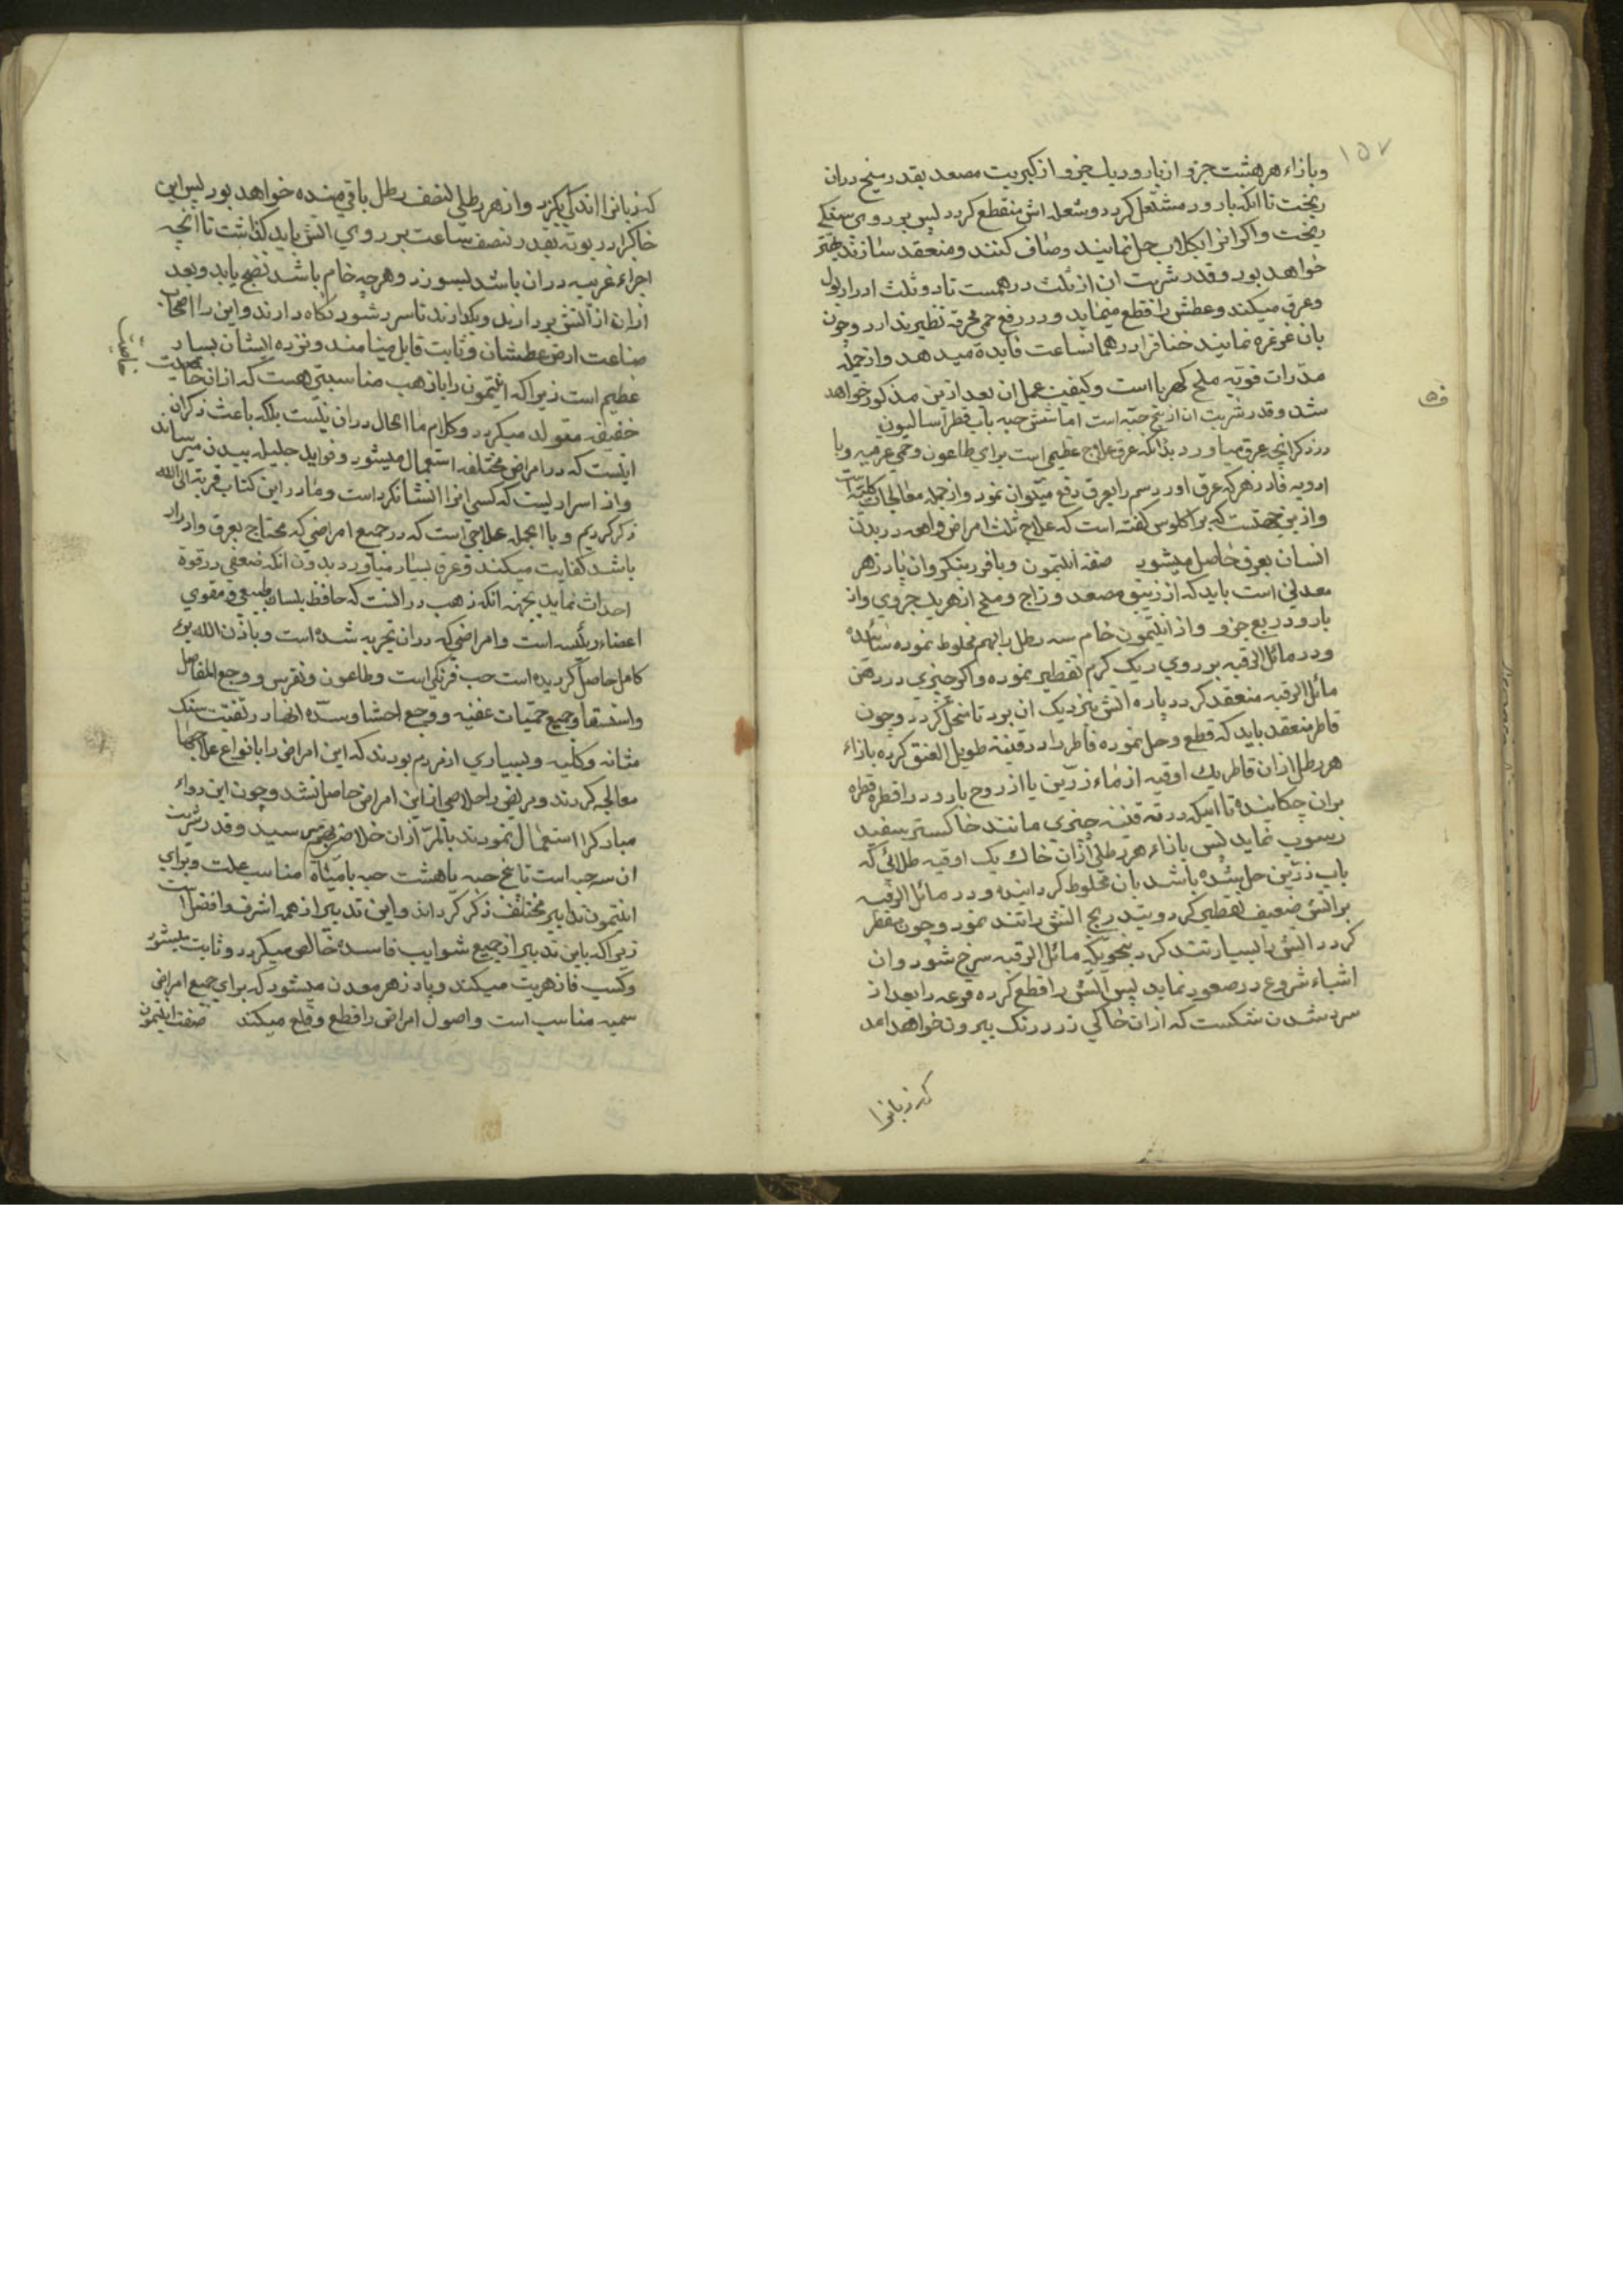 ۱۵۷
وبازاء هر هشت جزو از بارود یک جزو از کبریت مصعد بقدر منج دران
ریخت تا انکه بارود مشتعل کردد وشعله اش منقطع کردد پس بر روی سنکی
ریخت واکر انرا بکلاب حل نمایند وصاف کنند ومنعقد سازند بهتر
خواهد بود وقدر شربت ان از ثلث درهمست تا دو ثلث ادرار بول
وعرق میکند وعطش را قطع مینماید ودر رفع حمی محرقه نظیر ندارد وچون
بان غرغره نمایند خناق را در همانساعت فایدة میدهد واز جمله
مدرات قویه ملح کهربا است وکیفیت عمل ان بعد ازین مذکور خواهد
شد وقدر شربت ان از پنج حبه است اما شش حبه باب فطراسالیون
در ذکر انچه عرق میاورد بدانکه عرق علاج عظیمی است برای طاعون وحمی عرقیه وبا
ادویه فادزهر که عرق اورد سم را بعرق دفع میتوان نمود واز جمله معالجات کلیه است
وازین جهتست که براکلوس کفته است که علاج ثلث امراض واقعه در بدن
انسان بعرق حاصل میشود صفة انتیمون ودیافورینکو وان پادزهر
معدنی است باید که از زیبق مصعد وزاج وملح از هر یک جزوی واز
بارود ربع جزو واز انتیمون خام سه رطل را بهم مخلوط نموده سائیده
ودر مائل الرقبه بر روی ریک کرم تقطیر نموده واکر چیزی در دهن
مائل الرقبه منعقد کردد پاره اتش بنزدیک ان برد تا منحل کردد وچون
قاطر منعقد باید که قطع وحل نموده قاطر را در قنینه طویل العنق کرده بازاء
هر رطل ازان قاطر یک اوقیه از ماء زرین یا از روح بارود را قطره قطره
بران چکانیده تا اینکه در ته قنینه چیزی مانند خاکستر سفید
رسوب نماید پس بازاء هر رطلی ازان خاک یک اوقیه طلائی که
باب زرین حل شده باشد بان مخلوط کردانیده ودر مائل الرقبه
براتش ضعیف تقطیر کرد وبتدریج اتش را تند نمود وچون مقطر
کردد اتش را بسیار تند کرد بنحویکه مائل الرقبه سرخ شود وان
اشیاء شروع در صعود نماید پس اتش را قطع کرده قرعه را بعد از
سرد شدن شکست که ازان خاکی زرد رنک بیرون خواهد امد
که زبانرا
که زبانرا اندکی بکزد واز هر رطلی نصف رطل باقی مانده خواهد بود پس این
خاکرا در بوته بقدر نصف ساعت بر روی اتش باید کذاشت تا انچه
اجزاء غریبه دران باشد بسوزد وهر چه خام باشد نضج یابد وبعد
ازان از اتش بردارند وبکذارند تا سرد شود نکاه دارند واین را اصحاب
صناعت ارض عطشان وثابت قابل مینامند ونزد ایشان بسیار
عظیم است زیرا که انتیمون را با ذهب مناسبتی هست که ازان
خاصیت
خفیفه متولد میکردد وکلام ما الحال دران نیست بلکه باعث ذکر ان
اینست که در امراض مختلفه استعمال میشود وفواید جلیله ببدن میرساند
واز اسرار نیست که کسی انرا افشا نکرداست وما در این کتاب قربة الی الله
ذکر کردیم وبا الجمله علاجی است که در جمیع امراضی که محتاج بعرق وادرار
باشد کفایت میکند وعرق بسیار میاورد بدون انکه ضعفی در قوة
احداث نماید بجهة انکه ذهب در انست که حافظ بلسان طبیعی ومقوی
اعضاء رئیسه است وامراضی که دران تجربه شده است وباذن الله برء
کامل حاصل کردیده است حب فرنکی است وطاعون ونقرس ووجع المفاصل
واستسقا وجمیع حمیات عفنیه ووجع احشا وسده انها ودر تفتیت سنک
مثانه وکلیه وبسیاری از مردم بودند که این امراض را بانواع علاجها
معالجه کردند ومریض را خلاصی از این امراض حاصل نشد وچون این دواء
مبارکرا استعمال نمودند بالمره ازان خلاص میسر رسید وقدر شربت
ان سه حبه است تا پنج حبه یا هشت حبه با میاه مناسب علت وبرای
انتیمون تدابیر مختلف ذکر کرداند واین تدبیر از همه اشرف وافضل است
زیرا که باین تدبیر از جمیع شوایب فاسده خالص میکردد وثابت میشود
وکسب فازهریت میکند وپادزهر معدن میشود که برای جمیع امراض
سمیه مناسب است واصول امراض را قطع وقلع میکند صفت انتیمون